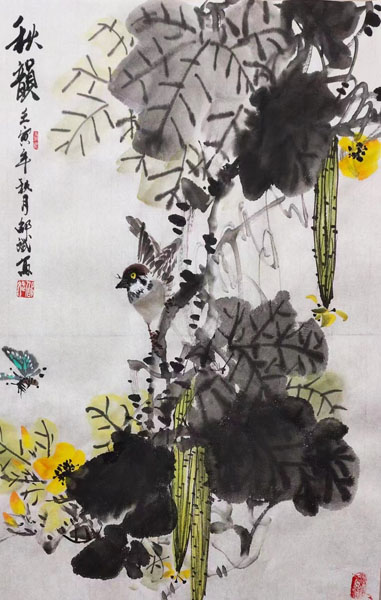 秋韻
壬寅年秋月郝斌写